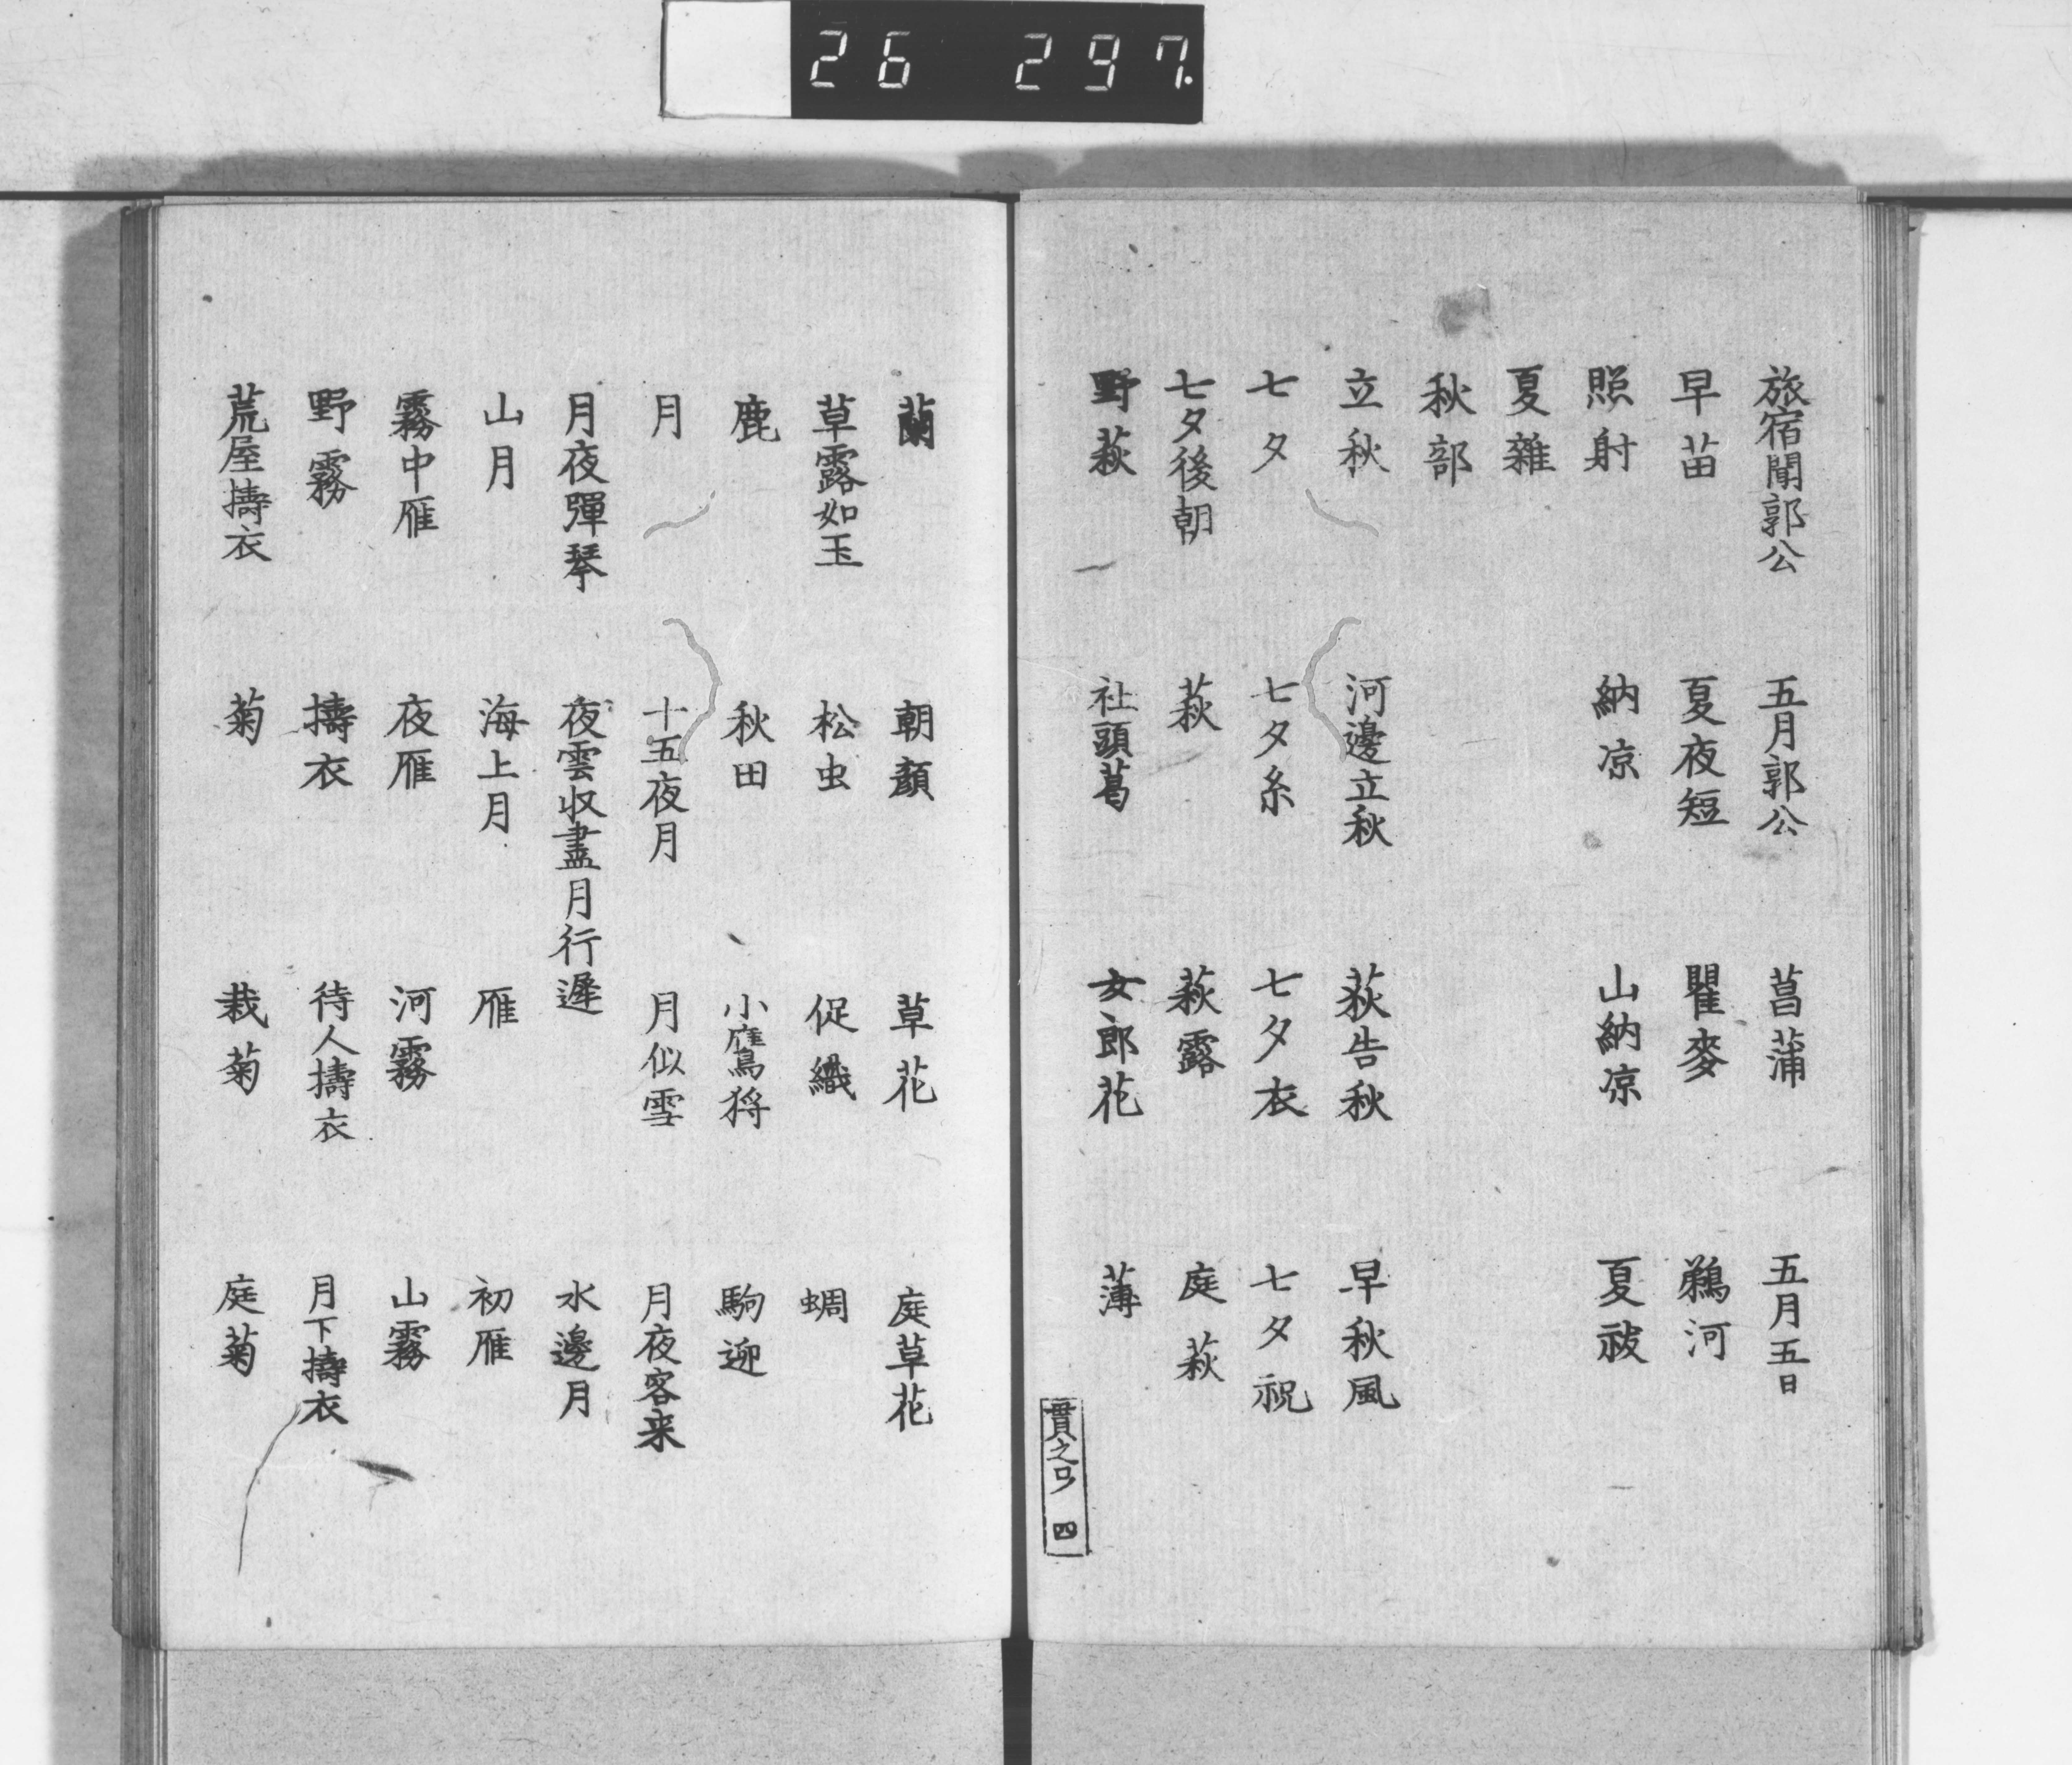 26 297.
旅宿聞郭公 五月郭公 菖蒲 五月五日
早苗 夏夜短 瞿麥 鵜河
照射 納凉 山納凉 夏祓
夏雜
秋部
立秋 河邊立秋 荻告秋 早秋風
七夕 七夕糸 七夕衣 七夕祝
七夕後朝 萩 萩露 庭萩
野萩 社頭葛 女郎花 薄
貫之 四
蘭 朝顏 草花 庭草花
草露如玉 松虫 促織 蜩
鹿 秋田 小鷹狩 駒迎
月 十五夜月 月似雪 月夜客来
月夜彈琴 夜雲収盡月行遲 水邊月
山月 海上月 雁 初雁
霧中雁 夜雁 河霧 山霧
野霧 擣衣 待人擣衣 月下擣衣
荒屋擣衣 菊 栽菊 庭菊